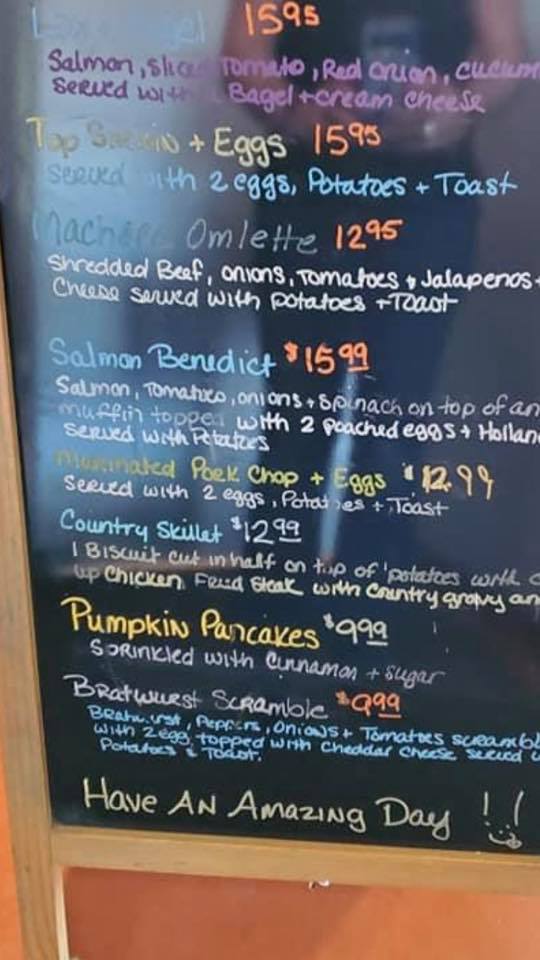 15.95
Salmon, sliced Tomato, Red onion, cucum
Served with Bagel + cream cheese
Top Sirloin + Eggs 15.95
served with 2 eggs, Potatoes + Toast
Machaca Omlette 12.95
Shredded Beef, onions, Tomatoes + Jalapenos +
Cheese served with potatoes + Toast
Salmon Benedict $15.99
Salmon, Tomatoes, onions + Spinach on top of an
muffin topped with 2 poached eggs + Holland
served with Potatoes
Marinated Pork Chop + Eggs $12.99
Served with 2 eggs, Potatoes + Toast
Country Skillet $12.99
1 Biscuit cut in half on top of potatoes with c
up Chicken Fried Steak with country gravy an
Pumpkin Pancakes $9.99
Sprinkled with Cinnamon + sugar
Bratwurst Scramble $9.99
Bratwurst, Peppers, Onions + Tomatoes scrambl
with 2 egg, topped with Cheddar Cheese served w
Potatoes & Toast.
Have An Amazing Day !!